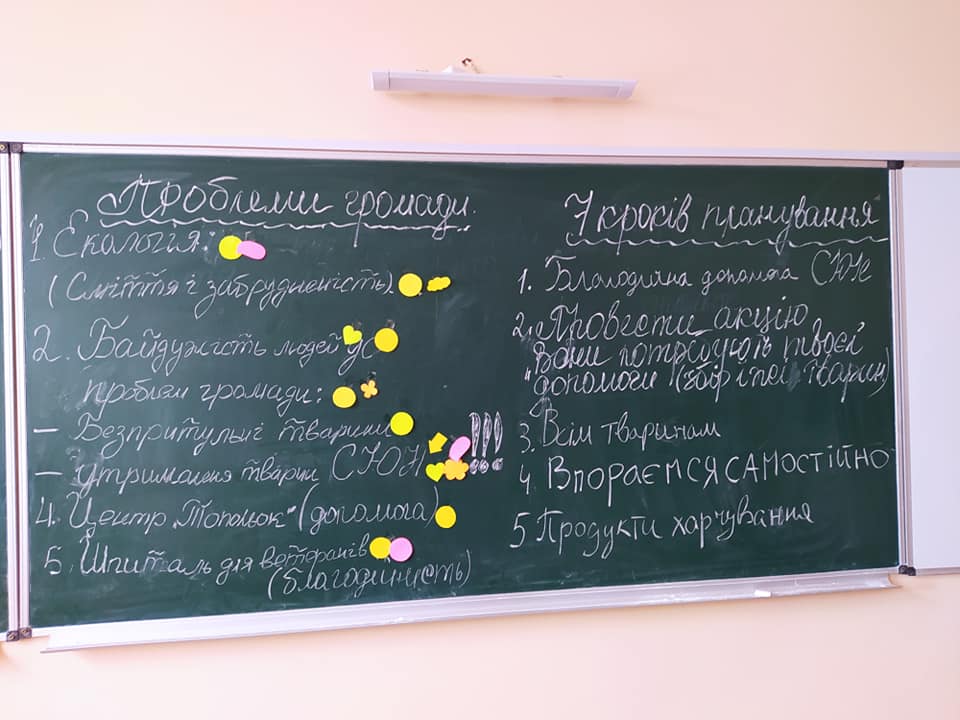 Проблеми громади.
1. Екологія:
(Сміття і забрудненість)
2. Байдужість людей до
проблем громади:
– Безпритульні тварини
– утримання тварин СЮН !!!
4. Центр "Тополюк" (допомога)
5. Шпиталь для ветеранів
(благодійність)
7 кроків планування
1. Благодійна допомога СЮН
2. Провести акцію
"Вони потребують твоєї
допомоги" (збір їжі тварин)
3. Всім тваринам
4. Впораємся самостійно
5. Продукти харчування